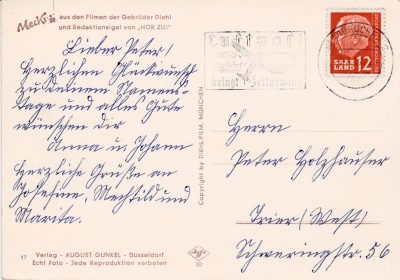 Mecki aus den Filmen der Gebrüder Diehl
und Redaktionsigel von „HÖR ZU!"
Lieber Peter!
Herzlichen Glückwunsch
zu deinem Namens-
tage und alles Gute
wünschen dir
Anna u Johann
Herzliche Grüße an
Josefine, Mechtild und
Marita.
57 Verlag - AUGUST GUNKEL - Düsseldorf
Echt Foto - Jede Reproduktion verboten
Copyright by DIEHL-FILM, MÜNCHEN
Agfa
Luftpost
bringt Zeitgewinn
SAAR
LAND 12
Herrn
Peter Holzhäuser
Trier (West)
Schweringstr. 56